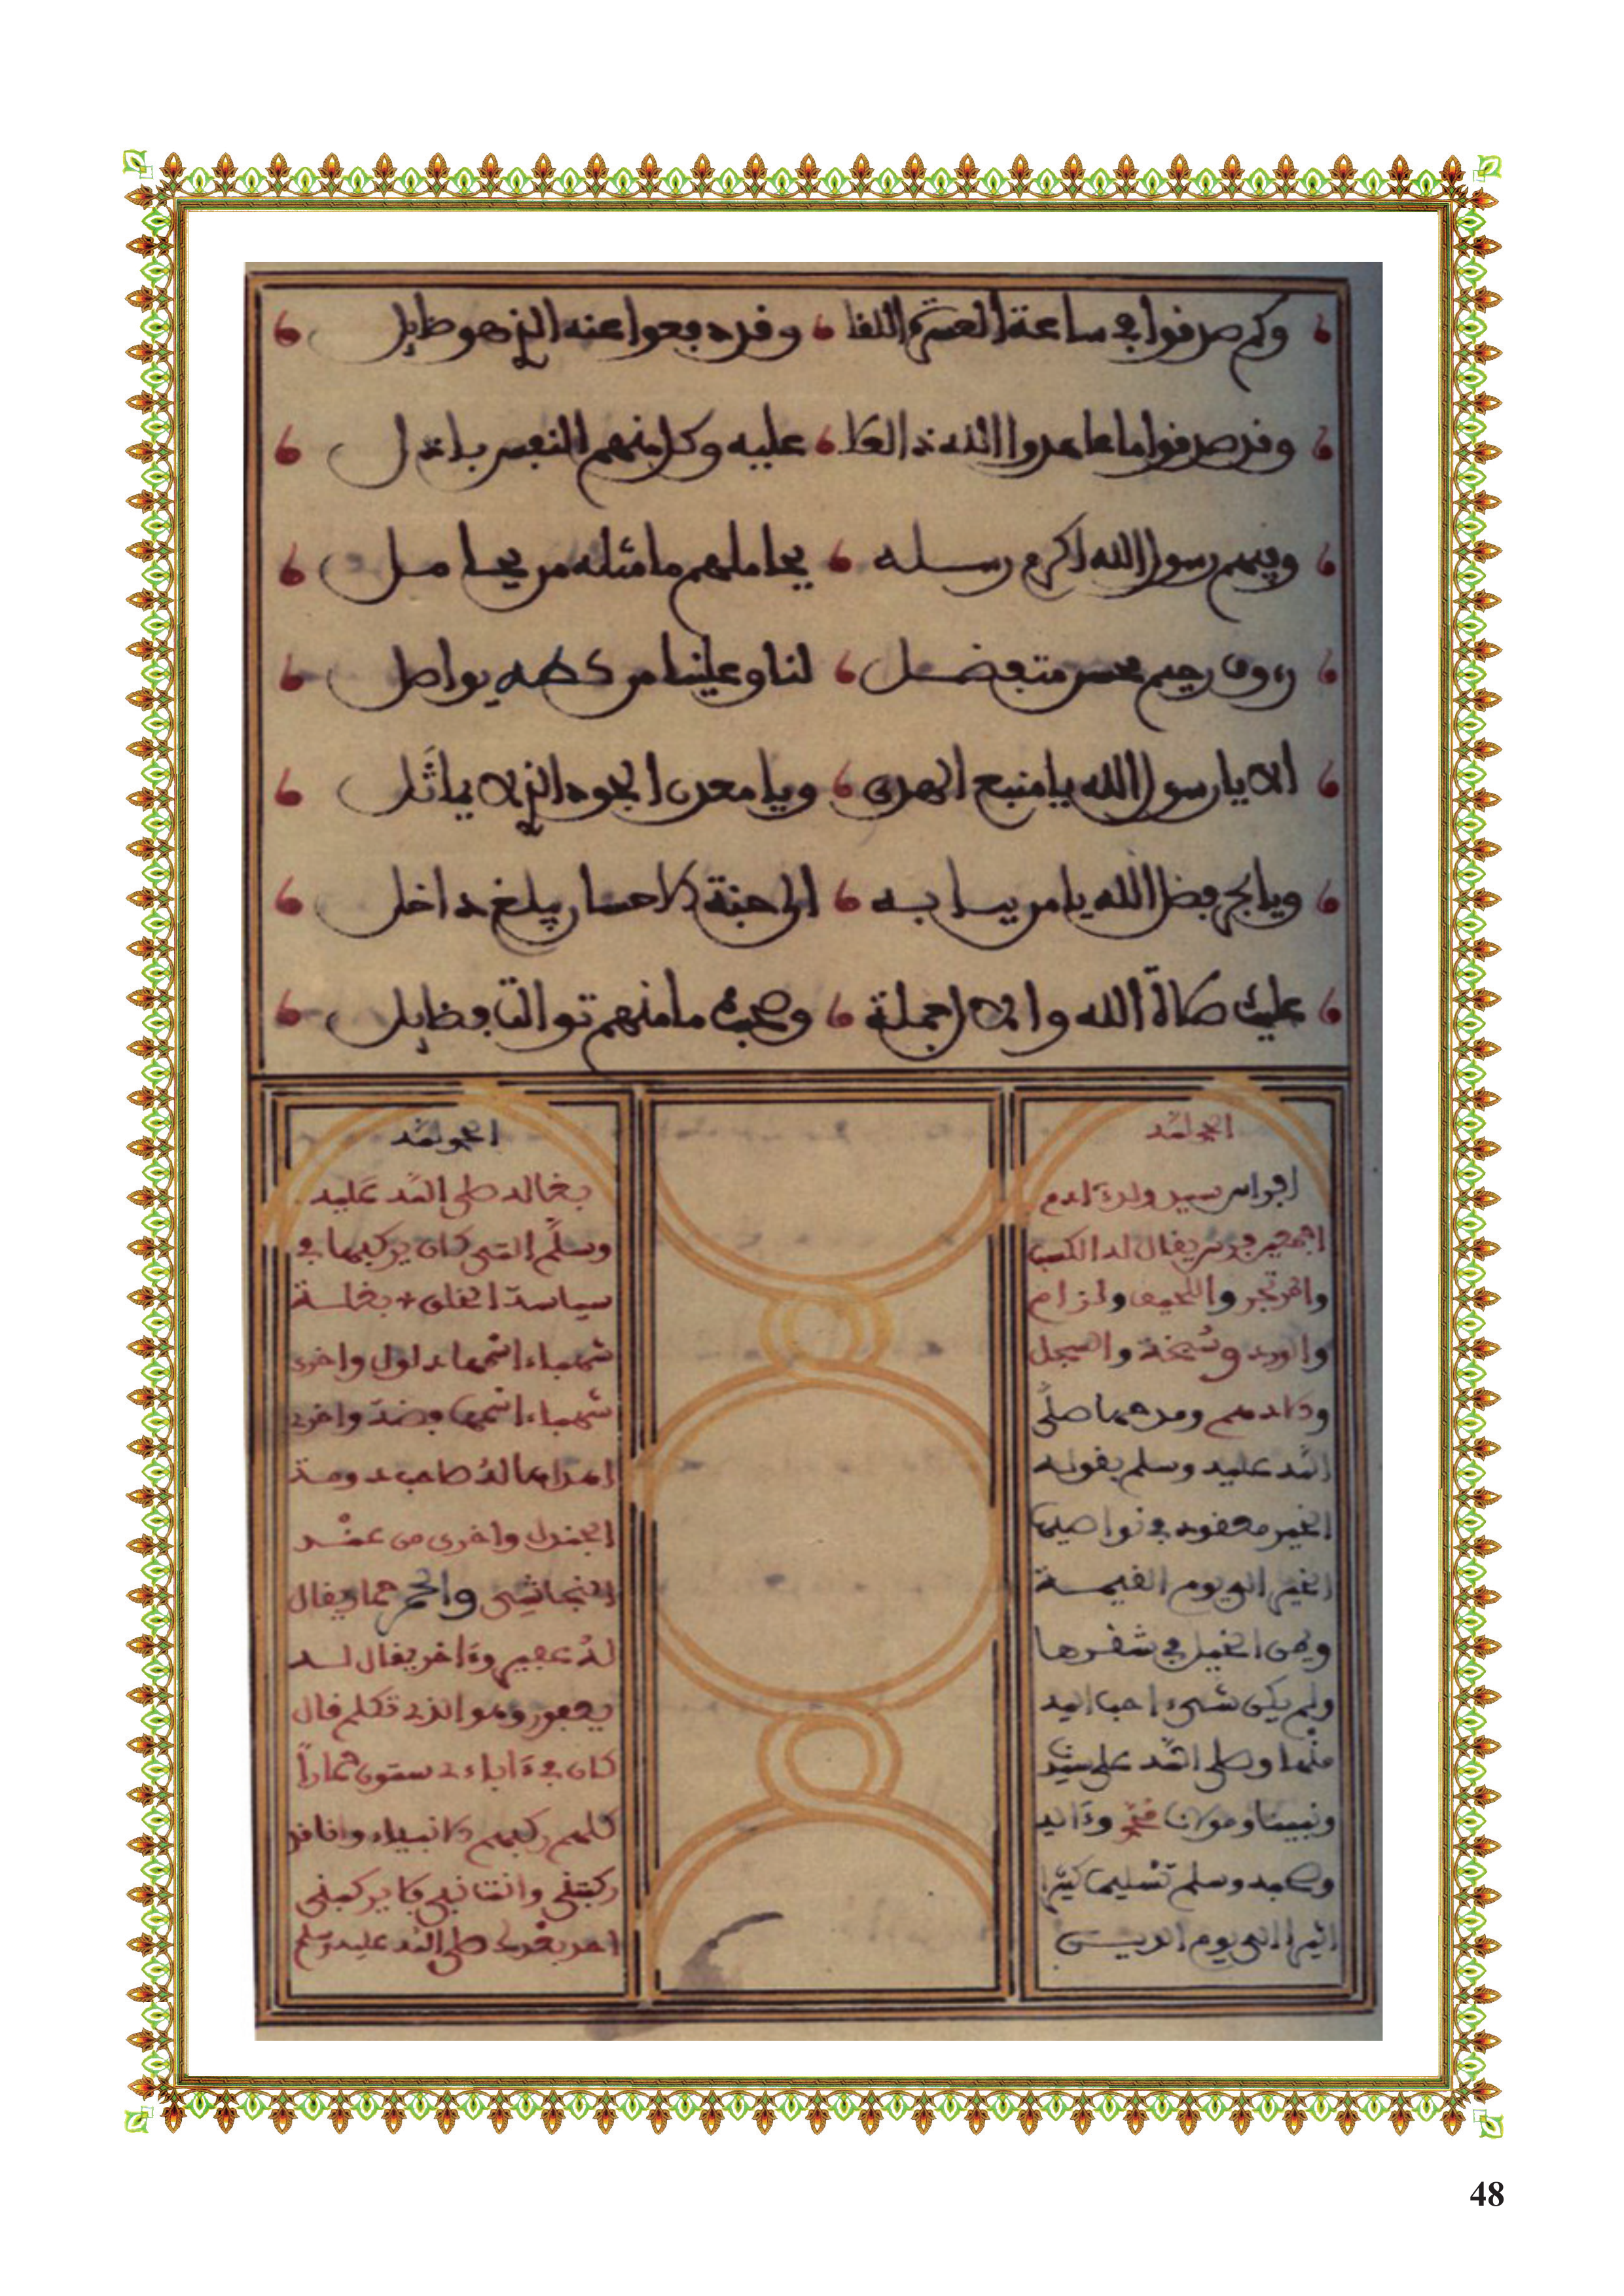 وكم صدقوا في ساعة العسرة اللقا وقد دفعوا عنه الذي هو ظايل
وقد صدقوا ما عاهدوا الله ذا العلا عليه وكل منهم النفس باذل
وفيهم رسول الله اكرم رسله يجاملهم ما مثله من يجامل
رءوف رحيم محسن متفضل لنا وعلينا من كطه يواصل
الا يا رسول الله يا منبع الهدى ويا معدن الجود الذي لا يماثل
ويا بحر فضل الله يا من ببابه الى جنة الاحسان يبلغ داخل
عليك صلاة الله والال جملة وصحبك ما منهم توالت فظايل
الحمد لله
افراس سيد ولد ءادم
اجمعين فرس يقال له السكب
والمرتجز واللحيف ولزام
والورد وسبحة والسجل
والادهم ومدحها صلى
الله عليه وسلم بقوله
الخير معقود في نواصيها
الخير الى يوم القيمة
وهي الخيل في شقرها
ولم يكن شيء احب اليه
منها وصلى الله على سيدنا
ونبينا ومولانا محمد وءاله
وصحبه وسلم تسليما كثيرا
اثيرا الى يوم الدين
الحمد لله
بغاله صلى الله عليه
وسلم التي كان يركبها في
سياسة الخلق بغلة
شهباء اسمها دلدل واخرى
شهباء اسمها فضة واخرى
اهداها له صاحب دومة
الجندل واخرى من عند
النجاشي والحمر حمار يقال
له عفير وءاخر يقال له
يعفور وهو الذي تكلم قال
كان في ءاباءي ستون حمارا
كلهم ركبهم الانبياء وانا قد
ركبتني وانت نبي فلا يركبني
احد بعدك صلى الله عليه وسلم
48